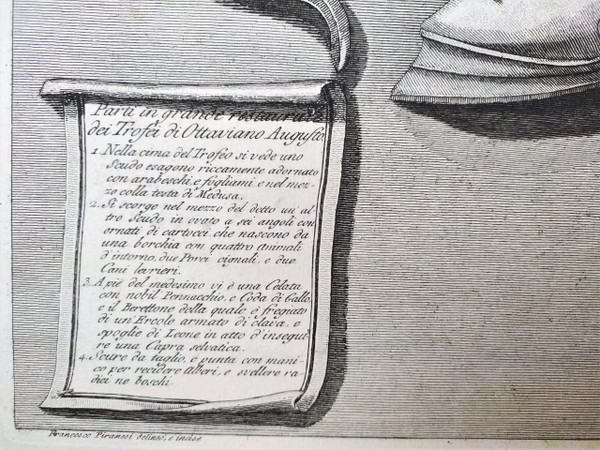 Parti in grande restaurate
dei Trofei di Ottaviano Augusto
1. Nella cima del Trofeo si vede uno
Scudo esagono riccamente adornato
con arabeschi, e fogliami, e nel mez-
zo colla testa di Medusa.
2. Si scorge nel mezzo del detto un' al
tro Scudo in ovato a sei angoli con
ornati di cartocci, che nascono da
una borchia con quattro Animali
d'intorno, due Porci cignali, e due
Cani levrieri.
3. A piè del medesimo vi è una Celata
con nobil Pennacchio, e Coda di Gallo,
e il Berettone della quale è fregiato
di un Ercole armato di clava, e
spoglie di Leone in atto d'insegui
re una Capra selvatica.
4. Scure da taglio, e punta con mani
co per recidere Alberi, e svellere ra-
dici ne boschi
Francesco Piranesi delineò, e incise